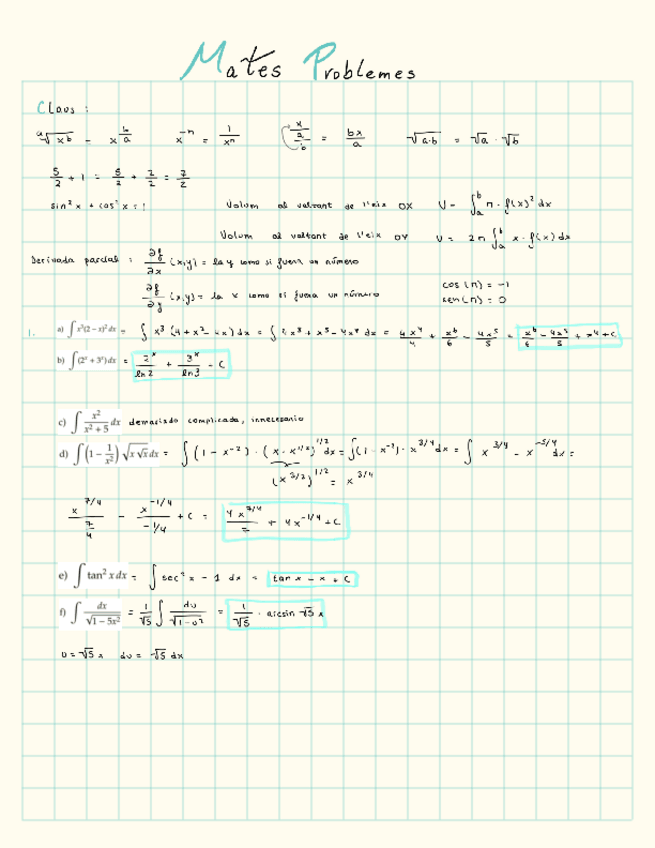 Mates Problemes
Claus :
ᵃ√x^b = x^(b/a)   x^-n = 1/x^n   (x/(a/b)) = bx/a   √a·b = √a · √b
5/2 + 1 = 5/2 + 2/2 = 7/2
sin² x + cos² x = 1   Volum al voltant de l'eix OX   V = ∫_a^b π · f(x)² dx
Volum al voltant de l'eix OY   V = 2π ∫_a^b x · f(x) dx
Derivada parcial : ∂f/∂x (x,y) = la y como si fuera un número
cos (π) = -1
∂f/∂y (x,y) = la x como si fuera un número   sen(π) = 0
1. a) ∫ x³(2 − x)² dx = ∫ x³ (4 + x² − 4x) dx = ∫ 4x³ + x⁵ − 4x⁴ dx = 4x⁴/4 + x⁶/6 − 4x⁵/5 = x⁶/6 − 4x⁵/5 + x⁴ + C
b) ∫(2ˣ + 3ˣ) dx = 2ˣ/ln 2 + 3ˣ/ln 3 + C
c) ∫ x²/(x² + 5) dx demasiado complicada, innecesario
d) ∫(1 − 1/x²) √(x√x) dx = ∫ (1 − x^-2) · (x · x^1/2)^1/2 dx = ∫(1 − x^-2) · x^3/4 dx = ∫ x^3/4 − x^-5/4 dx =
(x^3/2)^1/2 = x^3/4
x^7/4/(7/4) − x^-1/4/(-1/4) + C = 4x^7/4/7 + 4x^-1/4 + C
e) ∫ tan² x dx = ∫ sec² x − 1 dx = tan x − x + C
f) ∫ dx/√(1 − 5x²) = 1/√5 ∫ du/√(1 − u²) = 1/√5 · arcsin √5 x
u = √5 x   du = √5 dx